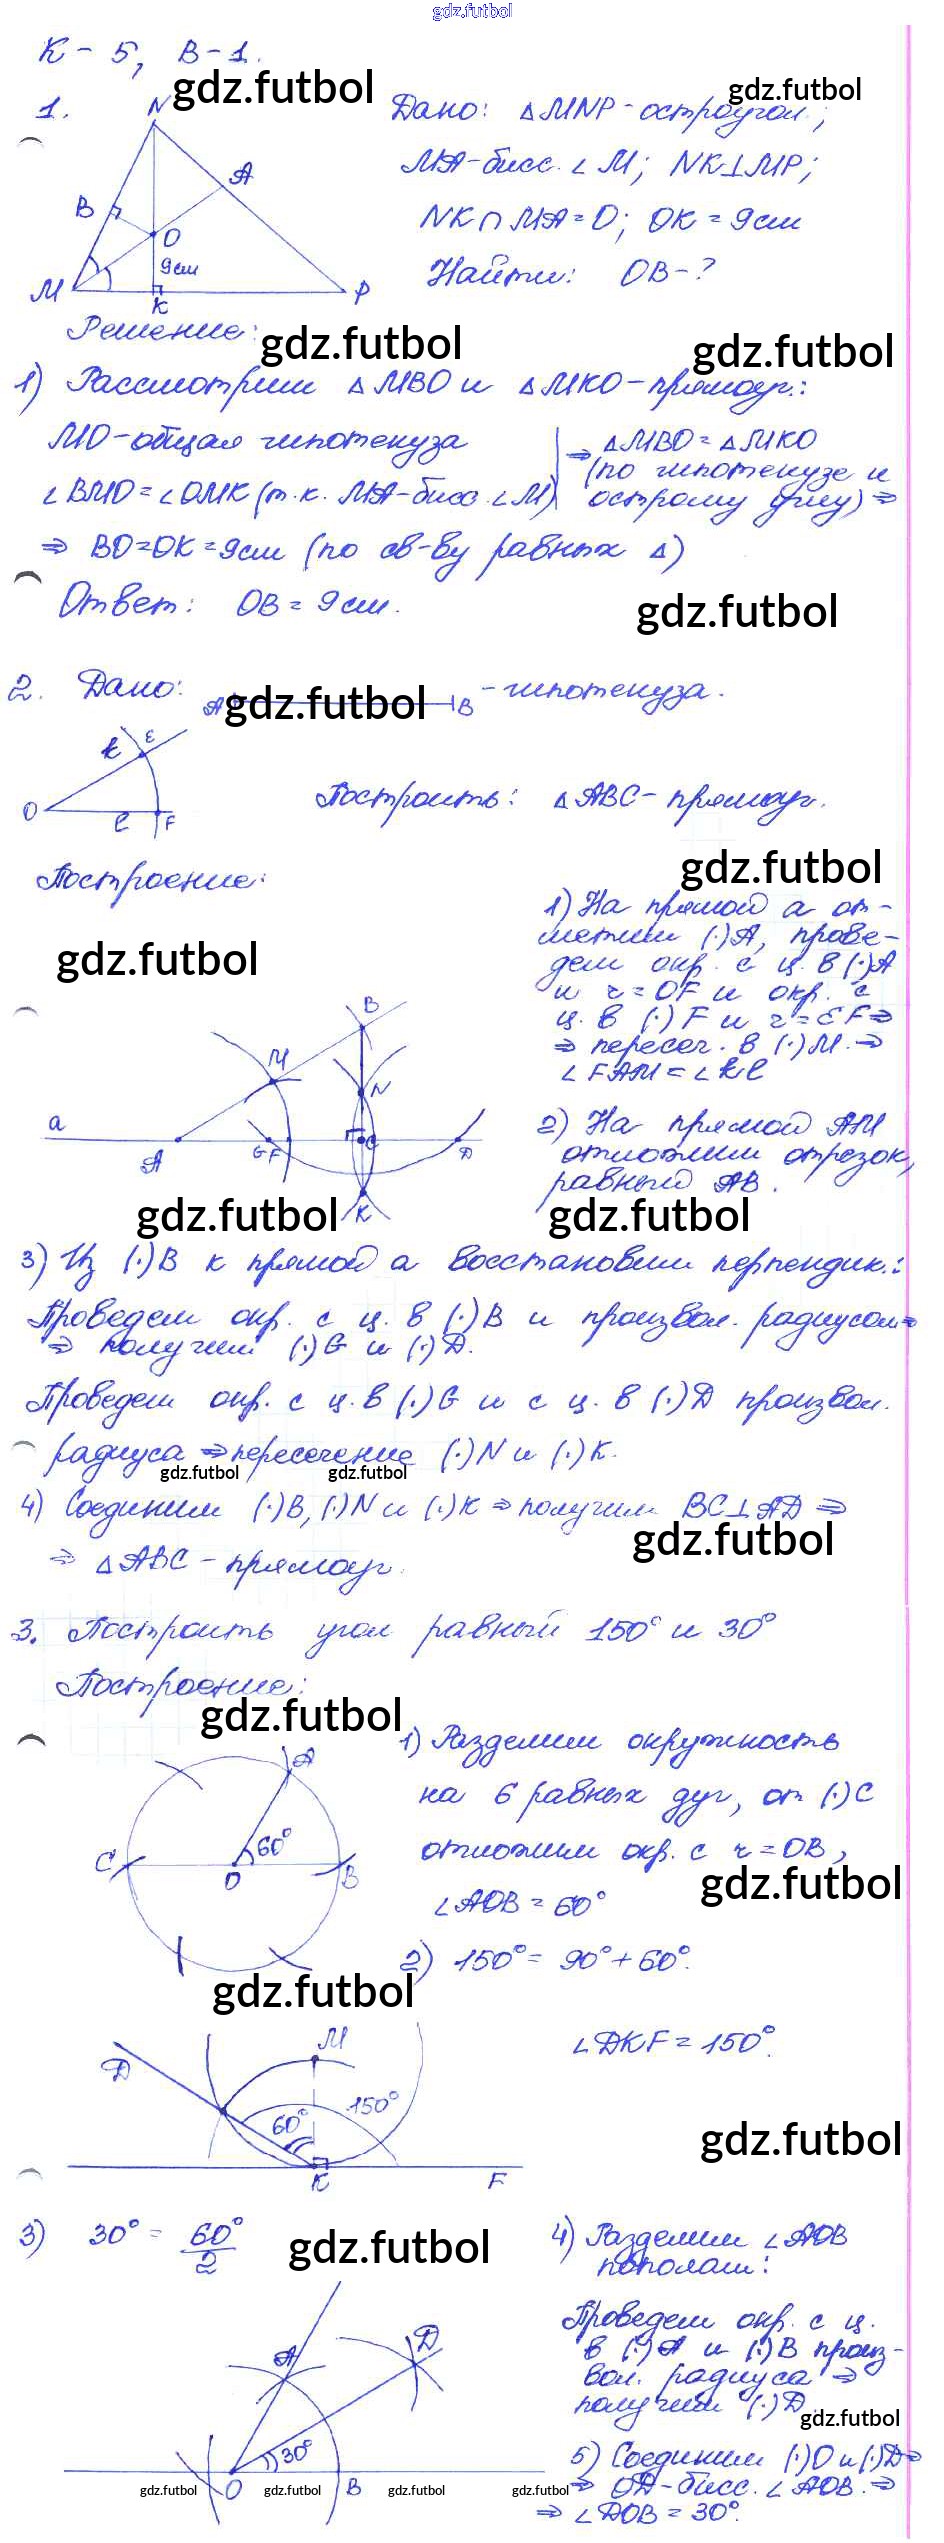 gdz.futbol
К-5, В-1.
gdz.futbol
1. N
gdz.futbol
Дано: △MNP-остроугол.;
A
MA-бисс. ∠M; NK⊥MP;
B
NK∩MA=O; OK=9см
O
9см
Найти: OB-?
M K P
Решение:
gdz.futbol gdz.futbol
1) Рассмотрим △MBO и △MKO-прямоуг.:
MO-общая гипотенуза
∠BMO=∠OMK (т.к. MA-бисс. ∠M)
⇒ △MBO=△MKO
(по гипотенузе и
острому углу) ⇒
⇒ BO=OK=9см (по св-ву равных △)
Ответ: OB=9см.
gdz.futbol
2. Дано: A B -гипотенуза.
gdz.futbol
k E
O l F
Построить: △ABC-прямоуг.
gdz.futbol
Построение:
gdz.futbol
1) На прямой a от-
метим (·)A, прове-
дем окр. с ц. в (·)A
и r=OF и окр. с
ц. в (·)F и r=EF⇒
⇒ пересеч. в (·)M.⇒
∠FAM=∠kl
B
M
N
a
A G F C D
K
2) На прямой AM
отложим отрезок,
равный AB.
gdz.futbol gdz.futbol
3) Из (·)B к прямой a восстановим перпендик.:
Проведем окр. с ц. в (·)B и произвол. радиусом⇒
⇒ получим (·)G и (·)D.
Проведем окр. с ц. в (·)G и с ц. в (·)D произвол.
радиуса ⇒пересечение (·)N и (·)K.
gdz.futbol gdz.futbol
4) Соединим (·)B, (·)N и (·)K ⇒ получим BC⊥AD ⇒
gdz.futbol
⇒ △ABC-прямоуг.
3. Построить угол равный 150° и 30°
Построение:
gdz.futbol
1) Разделим окружность
на 6 равных дуг, от (·)C
отложим окр. с r=OB,
∠AOB=60°
gdz.futbol
A
60°
C O B
2) 150°=90°+60°.
gdz.futbol
∠DKF=150°.
M
D
150°
60°
gdz.futbol
K F
3) 30°= 60°
2
gdz.futbol
4) Разделим ∠AOB
пополам:
Проведем окр. с ц.
в (·)A и (·)B произ-
вол. радиуса ⇒
получим (·)D.
gdz.futbol
A D
30°
O B
5) Соединим (·)O и (·)D⇒
⇒ OD-бисс. ∠AOB.⇒
⇒ ∠DOB=30°.
gdz.futbol gdz.futbol gdz.futbol gdz.futbol